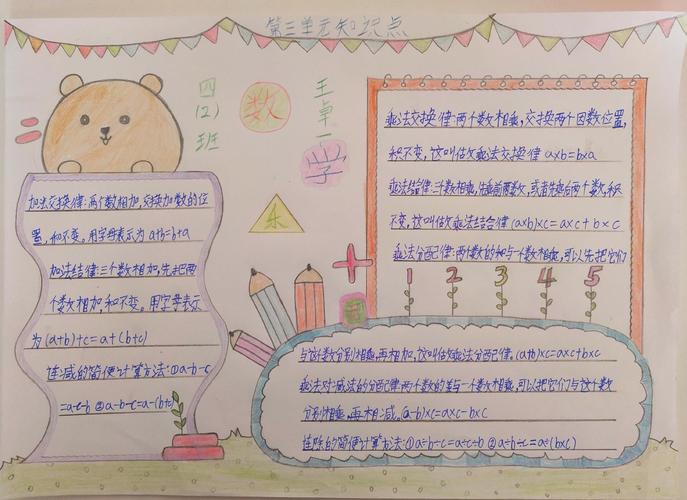 第三单元知识点
四(2)班
王卓一
数
学
乐
加法交换律:两个数相加,交换加数的位
置,和不变。用字母表示为a+b=b+a
加法结律:三个数相加,先把两
个数相加,和不变。用字母表示
为(a+b)+c=a+(b+c)
连减的简便计算方法:①a-b-c
=a-c-b ②a-b-c=a-(b+c)
乘法交换律:两个数相乘,交换两个因数位置,
积不变,这叫做乘法交换律a×b=b×a
乘法结合律:三个数相乘,先乘前两数,或者先乘后两个数,积
不变,这叫做乘法结合律(a×b)×c=a×c+b×c
乘法分配律:两个数的和与一个数相乘,可以先把它们
1 2 3 4 5
与这个数分别相乘,再相加,这叫做乘法分配律。(a+b)×c=a×c+b×c
乘法对减法的分配律:两个数的差与一个数相乘,可以把它们与这个数
分别相乘,再相减。(a-b)×c=a×c-b×c
连除的简便计算方法:①a÷b÷c=a÷c÷b ②a÷b÷c=a÷(b×c)